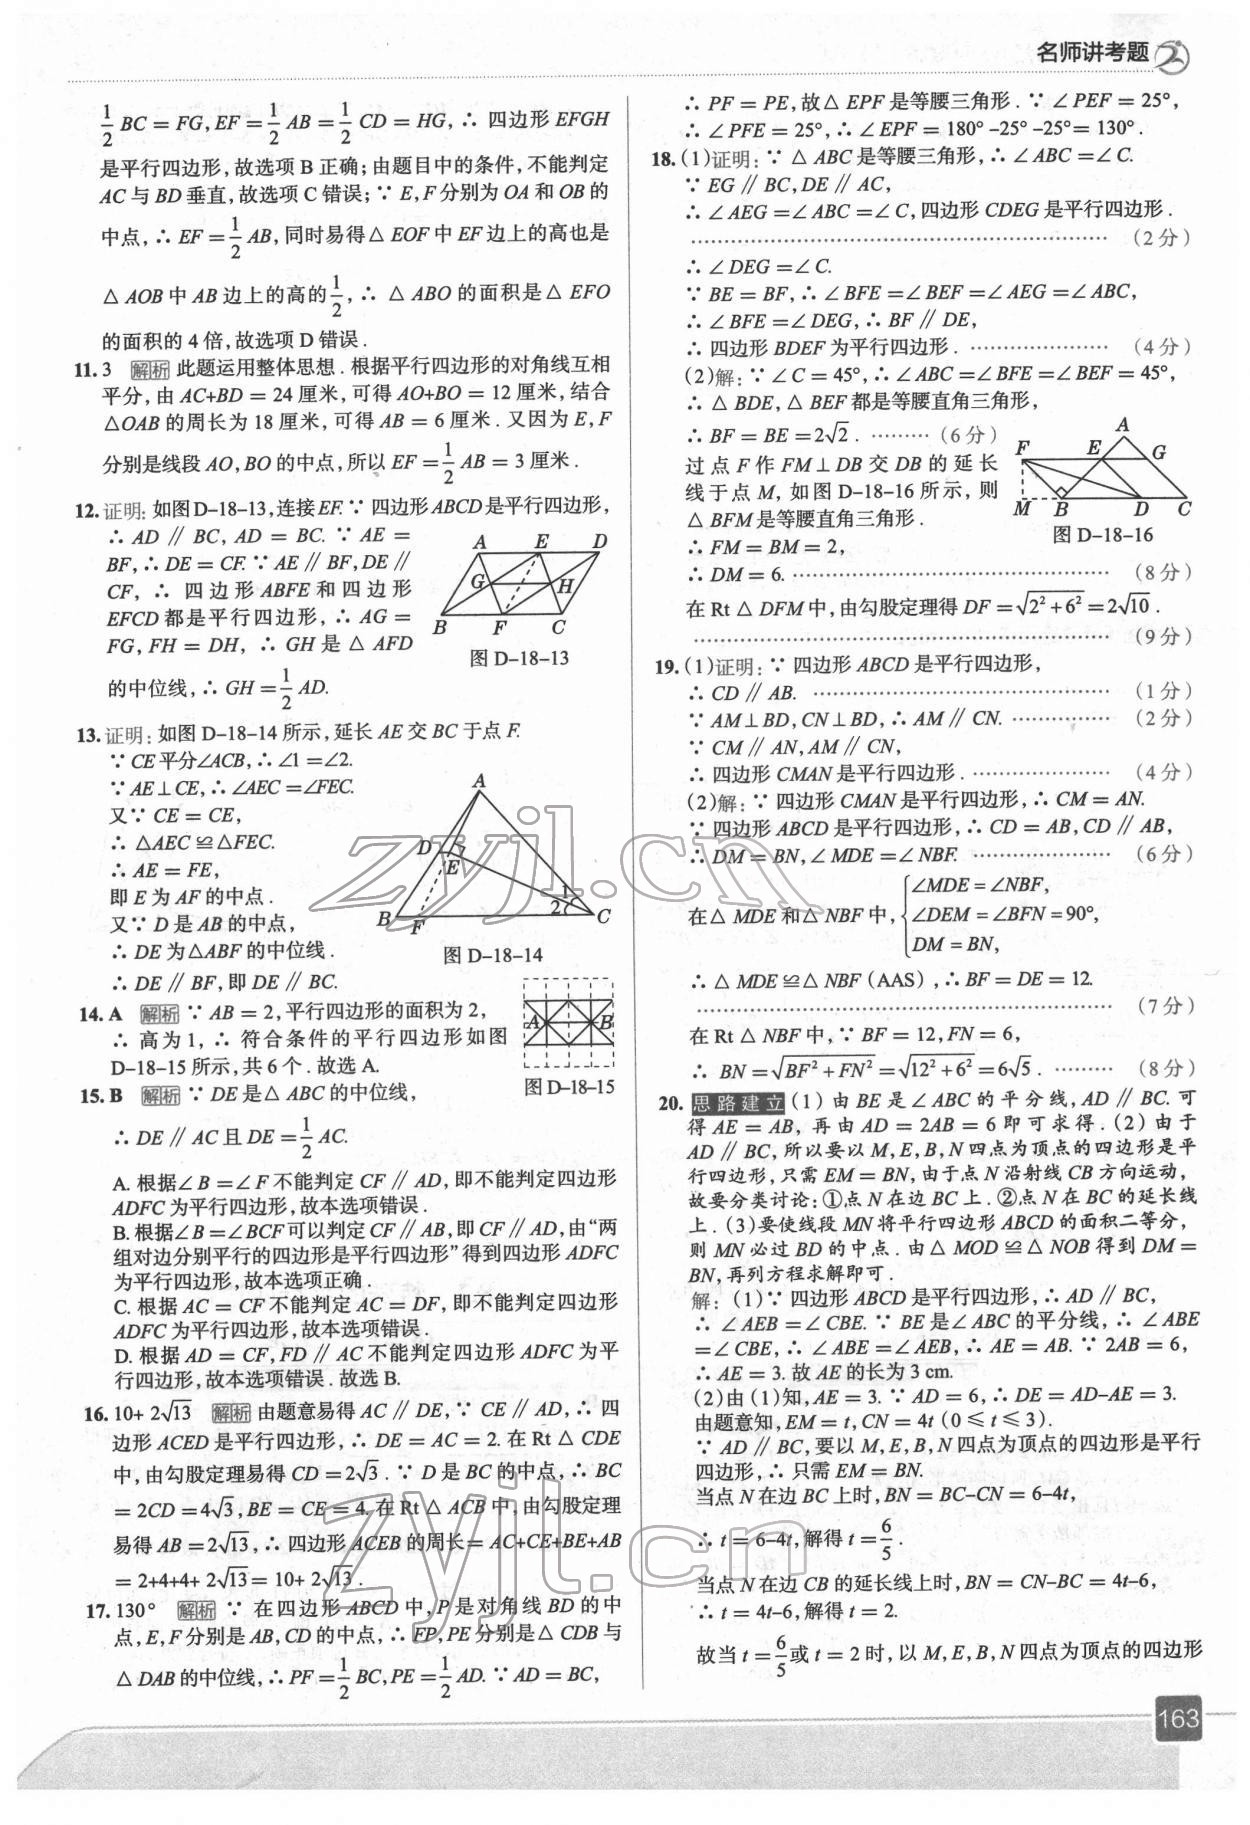 名师讲考题
1/2 BC = FG, EF = 1/2 AB = 1/2 CD = HG, ∴ 四边形 EFGH
是平行四边形, 故选项 B 正确; 由题目中的条件, 不能判定
AC 与 BD 垂直, 故选项 C 错误; ∵ E, F 分别为 OA 和 OB 的
中点, ∴ EF = 1/2 AB, 同时易得△ EOF 中 EF 边上的高也是
△ AOB 中 AB 边上的高的 1/2, ∴ △ ABO 的面积是△ EFO
的面积的 4 倍, 故选项 D 错误.
11. 3 解析 此题运用整体思想. 根据平行四边形的对角线互相
平分, 由 AC+BD = 24 厘米, 可得 AO+BO = 12 厘米, 结合
△OAB 的周长为 18 厘米, 可得 AB = 6 厘米. 又因为 E, F
分别是线段 AO, BO 的中点, 所以 EF = 1/2 AB = 3 厘米.
12. 证明: 如图D-18-13, 连接 EF. ∵ 四边形 ABCD 是平行四边形,
∴ AD ∥ BC, AD = BC. ∵ AE =
BF, ∴ DE = CF. ∵ AE ∥ BF, DE ∥
CF, ∴ 四边形 ABFE 和四边形
EFCD 都是平行四边形, ∴ AG =
FG, FH = DH, ∴ GH 是 △ AFD
的中位线, ∴ GH = 1/2 AD.
A E D
G H
B F C
图 D-18-13
13. 证明: 如图 D-18-14 所示, 延长 AE 交 BC 于点 F.
∵ CE 平分∠ACB, ∴ ∠1 =∠2.
∵ AE⊥CE, ∴ ∠AEC =∠FEC.
又∵ CE = CE,
∴ △AEC ≌ △FEC.
∴ AE = FE,
即 E 为 AF 的中点.
又∵ D 是 AB 的中点,
∴ DE 为△ABF 的中位线.
∴ DE ∥ BF, 即 DE ∥ BC.
A
D
E
1
2
B F C
图 D-18-14
14. A 解析 ∵ AB = 2, 平行四边形的面积为 2,
∴ 高为 1, ∴ 符合条件的平行四边形如图
D-18-15 所示, 共 6 个. 故选 A.
A B
图 D-18-15
15. B 解析 ∵ DE 是△ ABC 的中位线,
∴ DE ∥ AC 且 DE = 1/2 AC.
A. 根据∠ B =∠ F 不能判定 CF ∥ AD, 即不能判定四边形
ADFC 为平行四边形, 故本选项错误.
B. 根据∠B =∠BCF 可以判定 CF ∥ AB, 即 CF ∥ AD, 由“两
组对边分别平行的四边形是平行四边形”得到四边形 ADFC
为平行四边形, 故本选项正确.
C. 根据 AC = CF 不能判定 AC = DF, 即不能判定四边形
ADFC 为平行四边形, 故本选项错误.
D. 根据 AD = CF, FD ∥ AC 不能判定四边形 ADFC 为平
行四边形, 故本选项错误. 故选 B.
16. 10+ 2√13 解析 由题意易得 AC ∥ DE, ∵ CE ∥ AD, ∴ 四
边形 ACED 是平行四边形, ∴ DE = AC = 2. 在 Rt △ CDE
中, 由勾股定理易得 CD = 2√3. ∵ D 是 BC 的中点, ∴ BC
= 2CD = 4√3, BE = CE = 4. 在 Rt △ ACB 中, 由勾股定理
易得 AB = 2√13, ∴ 四边形 ACEB 的周长 = AC+CE+BE+AB
= 2+4+4+ 2√13 = 10+ 2√13.
17. 130° 解析 ∵ 在四边形 ABCD 中, P 是对角线 BD 的中
点, E, F 分别是 AB, CD 的中点, ∴ FP, PE 分别是△ CDB 与
△ DAB 的中位线, ∴ PF = 1/2 BC, PE = 1/2 AD. ∵ AD = BC,
∴ PF = PE, 故△ EPF 是等腰三角形. ∵ ∠ PEF = 25°,
∴ ∠ PFE = 25°, ∴ ∠ EPF = 180° -25° -25°= 130°.
18. (1)证明: ∵ △ ABC 是等腰三角形, ∴ ∠ ABC =∠ C.
∵ EG ∥ BC, DE ∥ AC,
∴ ∠ AEG =∠ ABC =∠ C, 四边形 CDEG 是平行四边形.
(2 分)
∴ ∠ DEG =∠ C.
∵ BE = BF, ∴ ∠ BFE =∠ BEF =∠ AEG =∠ ABC,
∴ ∠ BFE =∠ DEG, ∴ BF ∥ DE,
∴ 四边形 BDEF 为平行四边形. (4 分)
(2)解: ∵ ∠ C = 45°, ∴ ∠ ABC =∠ BFE =∠ BEF = 45°,
∴ △ BDE, △ BEF 都是等腰直角三角形,
∴ BF = BE = 2√2. (6 分)
过点 F 作 FM ⊥ DB 交 DB 的延长
线于点 M, 如图 D-18-16 所示, 则
△ BFM 是等腰直角三角形.
∴ FM = BM = 2,
∴ DM = 6. (8 分)
A
F E G
M B D C
图 D-18-16
在 Rt △ DFM 中, 由勾股定理得 DF = √(2²+6²) = 2√10.
(9 分)
19. (1)证明: ∵ 四边形 ABCD 是平行四边形,
∴ CD ∥ AB. (1 分)
∵ AM⊥BD, CN⊥BD, ∴ AM ∥ CN. (2 分)
∵ CM ∥ AN, AM ∥ CN,
∴ 四边形 CMAN 是平行四边形. (4 分)
(2)解: ∵ 四边形 CMAN 是平行四边形, ∴ CM = AN.
∵ 四边形 ABCD 是平行四边形, ∴ CD = AB, CD ∥ AB,
∴ DM = BN, ∠ MDE =∠ NBF. (6 分)
在△ MDE 和△ NBF 中, { ∠MDE = ∠NBF,
∠DEM = ∠BFN = 90°,
DM = BN,
∴ △ MDE ≌△ NBF (AAS), ∴ BF = DE = 12.
(7 分)
在 Rt △ NBF 中, ∵ BF = 12, FN = 6,
∴ BN = √(BF²+FN²) = √(12²+6²) = 6√5. (8 分)
20. 思路建立 (1) 由 BE 是∠ ABC 的平分线, AD ∥ BC. 可
得 AE = AB, 再由 AD = 2AB = 6 即可求得. (2) 由于
AD ∥ BC, 所以要以 M, E, B, N 四点为顶点的四边形是平
行四边形, 只需 EM = BN, 由于点 N 沿射线 CB 方向运动,
故要分类讨论: ①点 N 在边 BC 上. ②点 N 在 BC 的延长线
上. (3)要使线段 MN 将平行四边形 ABCD 的面积二等分,
则 MN 必过 BD 的中点. 由△ MOD ≌△ NOB 得到 DM =
BN, 再列方程求解即可.
解: (1)∵ 四边形 ABCD 是平行四边形, ∴ AD ∥ BC,
∴ ∠ AEB =∠ CBE. ∵ BE 是∠ ABC 的平分线, ∴ ∠ ABE
=∠ CBE, ∴ ∠ ABE =∠ AEB, ∴ AE = AB. ∵ 2AB = 6,
∴ AE = 3. 故 AE 的长为 3 cm.
(2)由 (1)知, AE = 3. ∵ AD = 6, ∴ DE = AD-AE = 3.
由题意知, EM = t, CN = 4t (0 ⩽ t ⩽ 3).
∵ AD ∥ BC, 要以 M, E, B, N 四点为顶点的四边形是平行
四边形, ∴ 只需 EM = BN.
当点 N 在边 BC 上时, BN = BC-CN = 6-4t,
∴ t = 6-4t, 解得 t = 6/5.
当点 N 在边 CB 的延长线上时, BN = CN-BC = 4t-6,
∴ t = 4t-6, 解得 t = 2.
故当 t = 6/5 或 t = 2 时, 以 M, E, B, N 四点为顶点的四边形
163
zyjl.cn
zyjl.cn